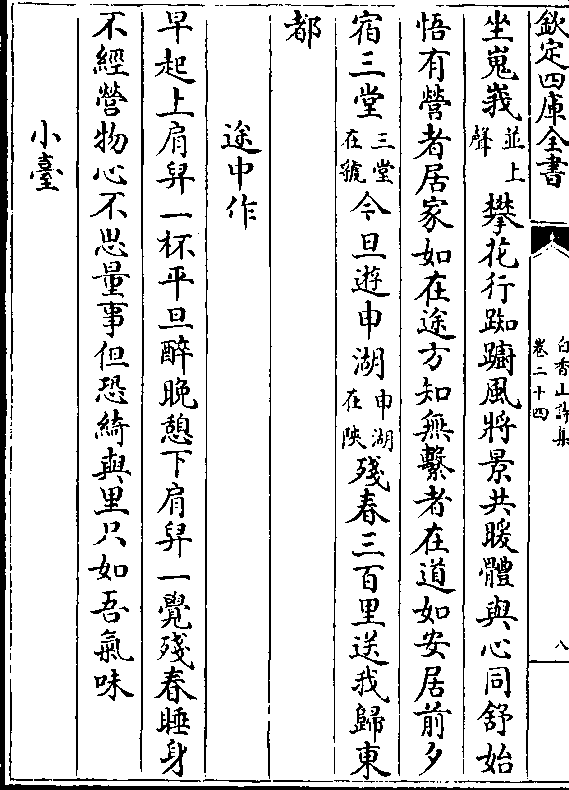 欽定四庫全書
白香山詩集
卷二十四
八
坐嵬峩並上聲攀花行踟躕風將景共暖體與心同舒始
悟有營者居家如在途方知無繫者在道如安居前夕
宿三堂三堂在虢今旦遊申湖申湖在陝殘春三百里送我歸東
都
途中作
早起上肩舁一杯平旦醉晚憩下肩舁一覺殘春睡身
不經營物心不思量事但恐綺與里只如吾氣味
小臺